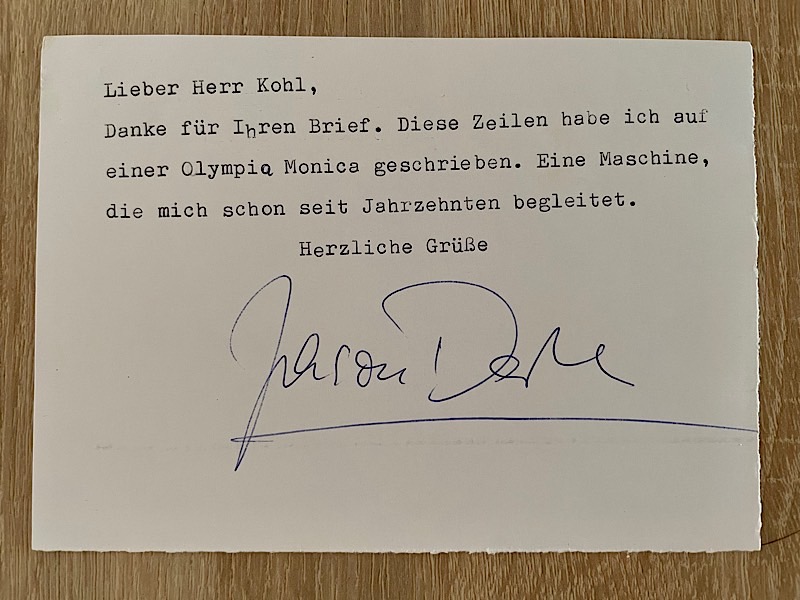 Lieber Herr Kohl,
Danke für Ihren Brief. Diese Zeilen habe ich auf
einer Olympia Monica geschrieben. Eine Maschine,
die mich schon seit Jahrzehnten begleitet.
Herzliche Grüße